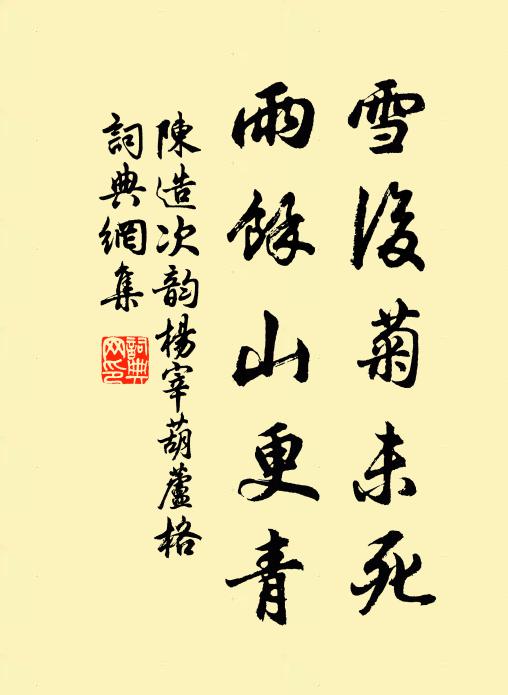 雪後菊未死
雨餘山更青
陳造次韵楊宰葫蘆格
詞典網集
詞典
网印